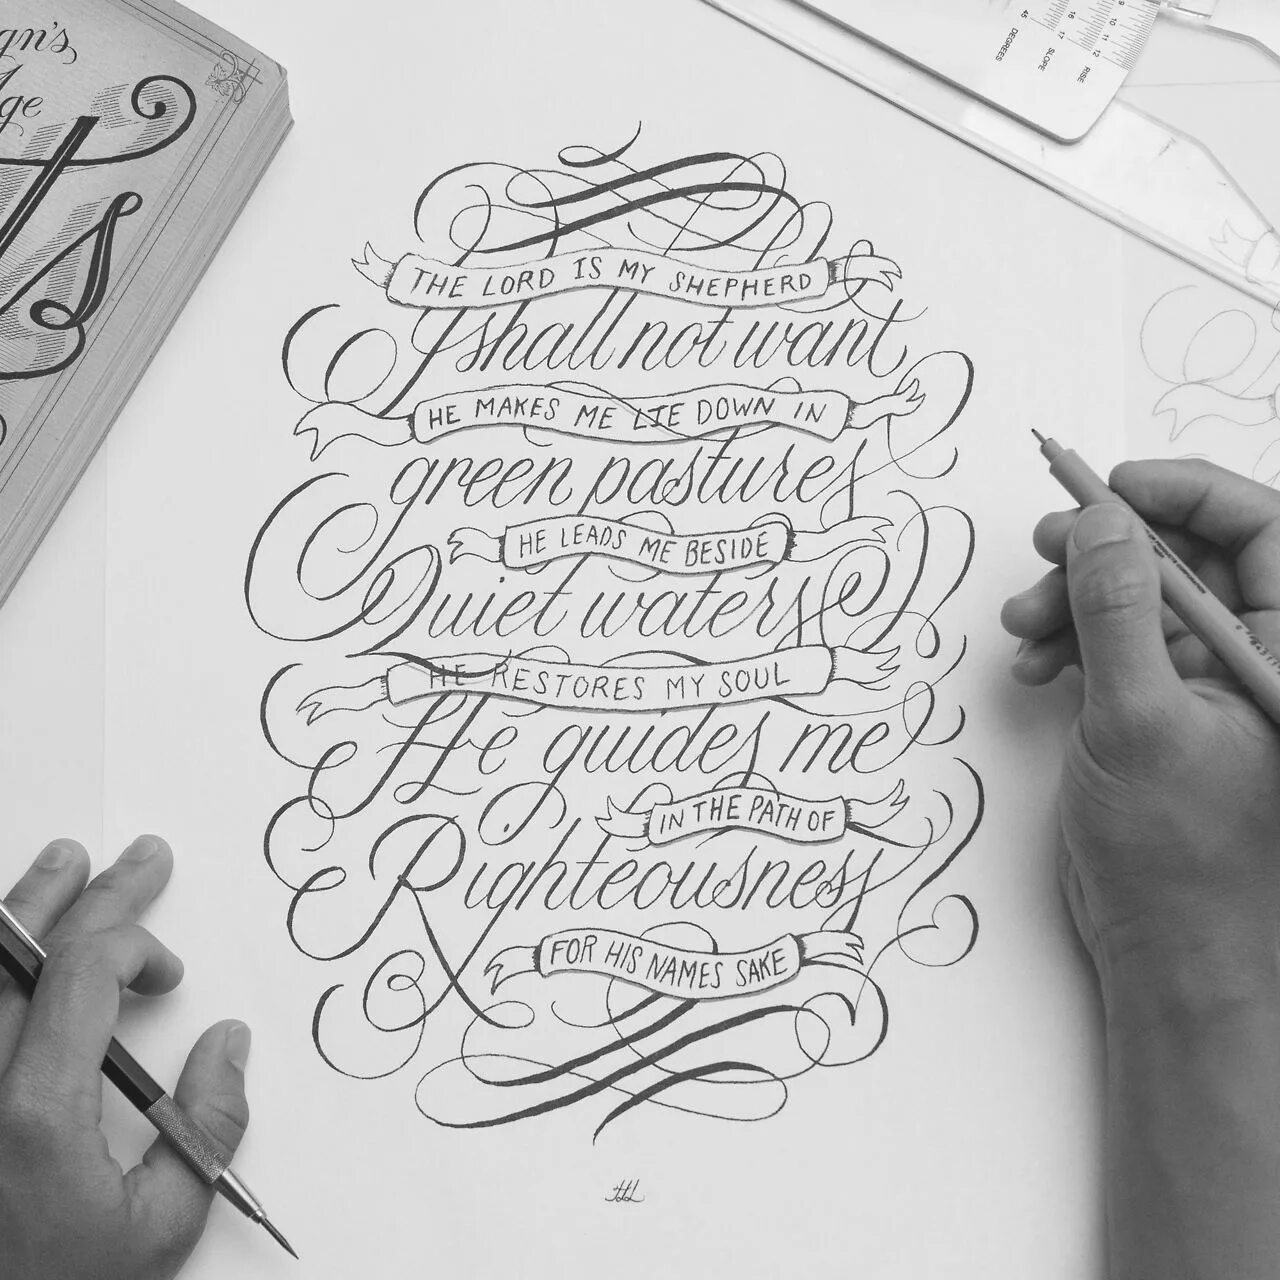 gn's
Age
ts
45
DEGREES
16
17
SLOPE
9
10
11
12
RISE
THE LORD IS MY SHEPHERD
I shall not want
HE MAKES ME LIE DOWN IN
green pastures
HE LEADS ME BESIDE
Quiet waters
HE RESTORES MY SOUL
He guides me
IN THE PATH OF
Righteousness
FOR HIS NAMES SAKE